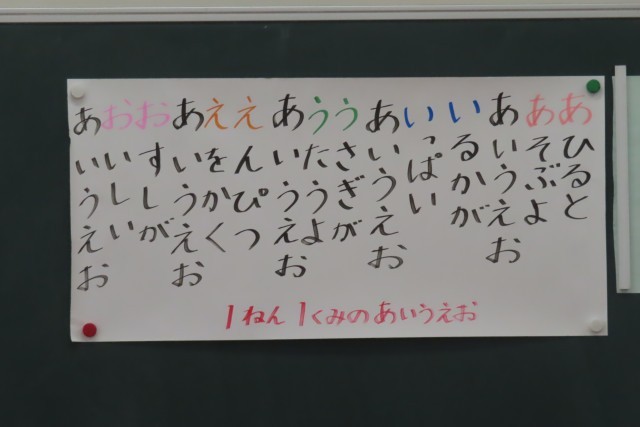 あひると
あそぶよ
あいうえお
いるかが
いっぱい
あいうえお
うさぎが
うたうよ
あいうえお
えんぴつ
えをかく
あいうえお
おすしが
おいしい
あいうえお
1ねん1くみのあいうえお